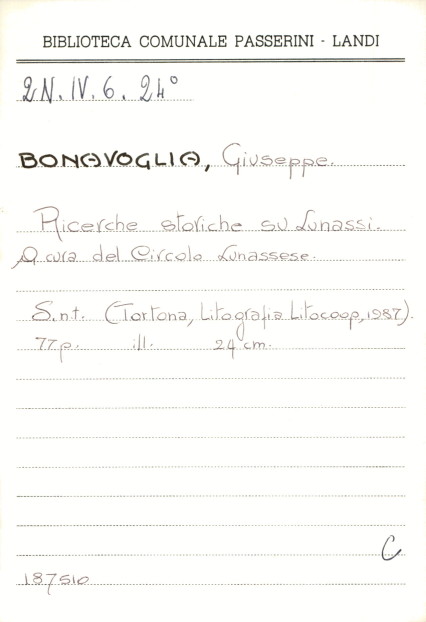 BIBLIOTECA COMUNALE PASSERINI - LANDI
2N.IV.6.24°
BONAVOGLIA, Giuseppe.
Ricerche storiche su Lunassi.
A cura del Circolo Lunassese.
S.n.t. (Tortona, Litografia Litocoop, 1987).
77 p. ill. 24 cm.
C
187510